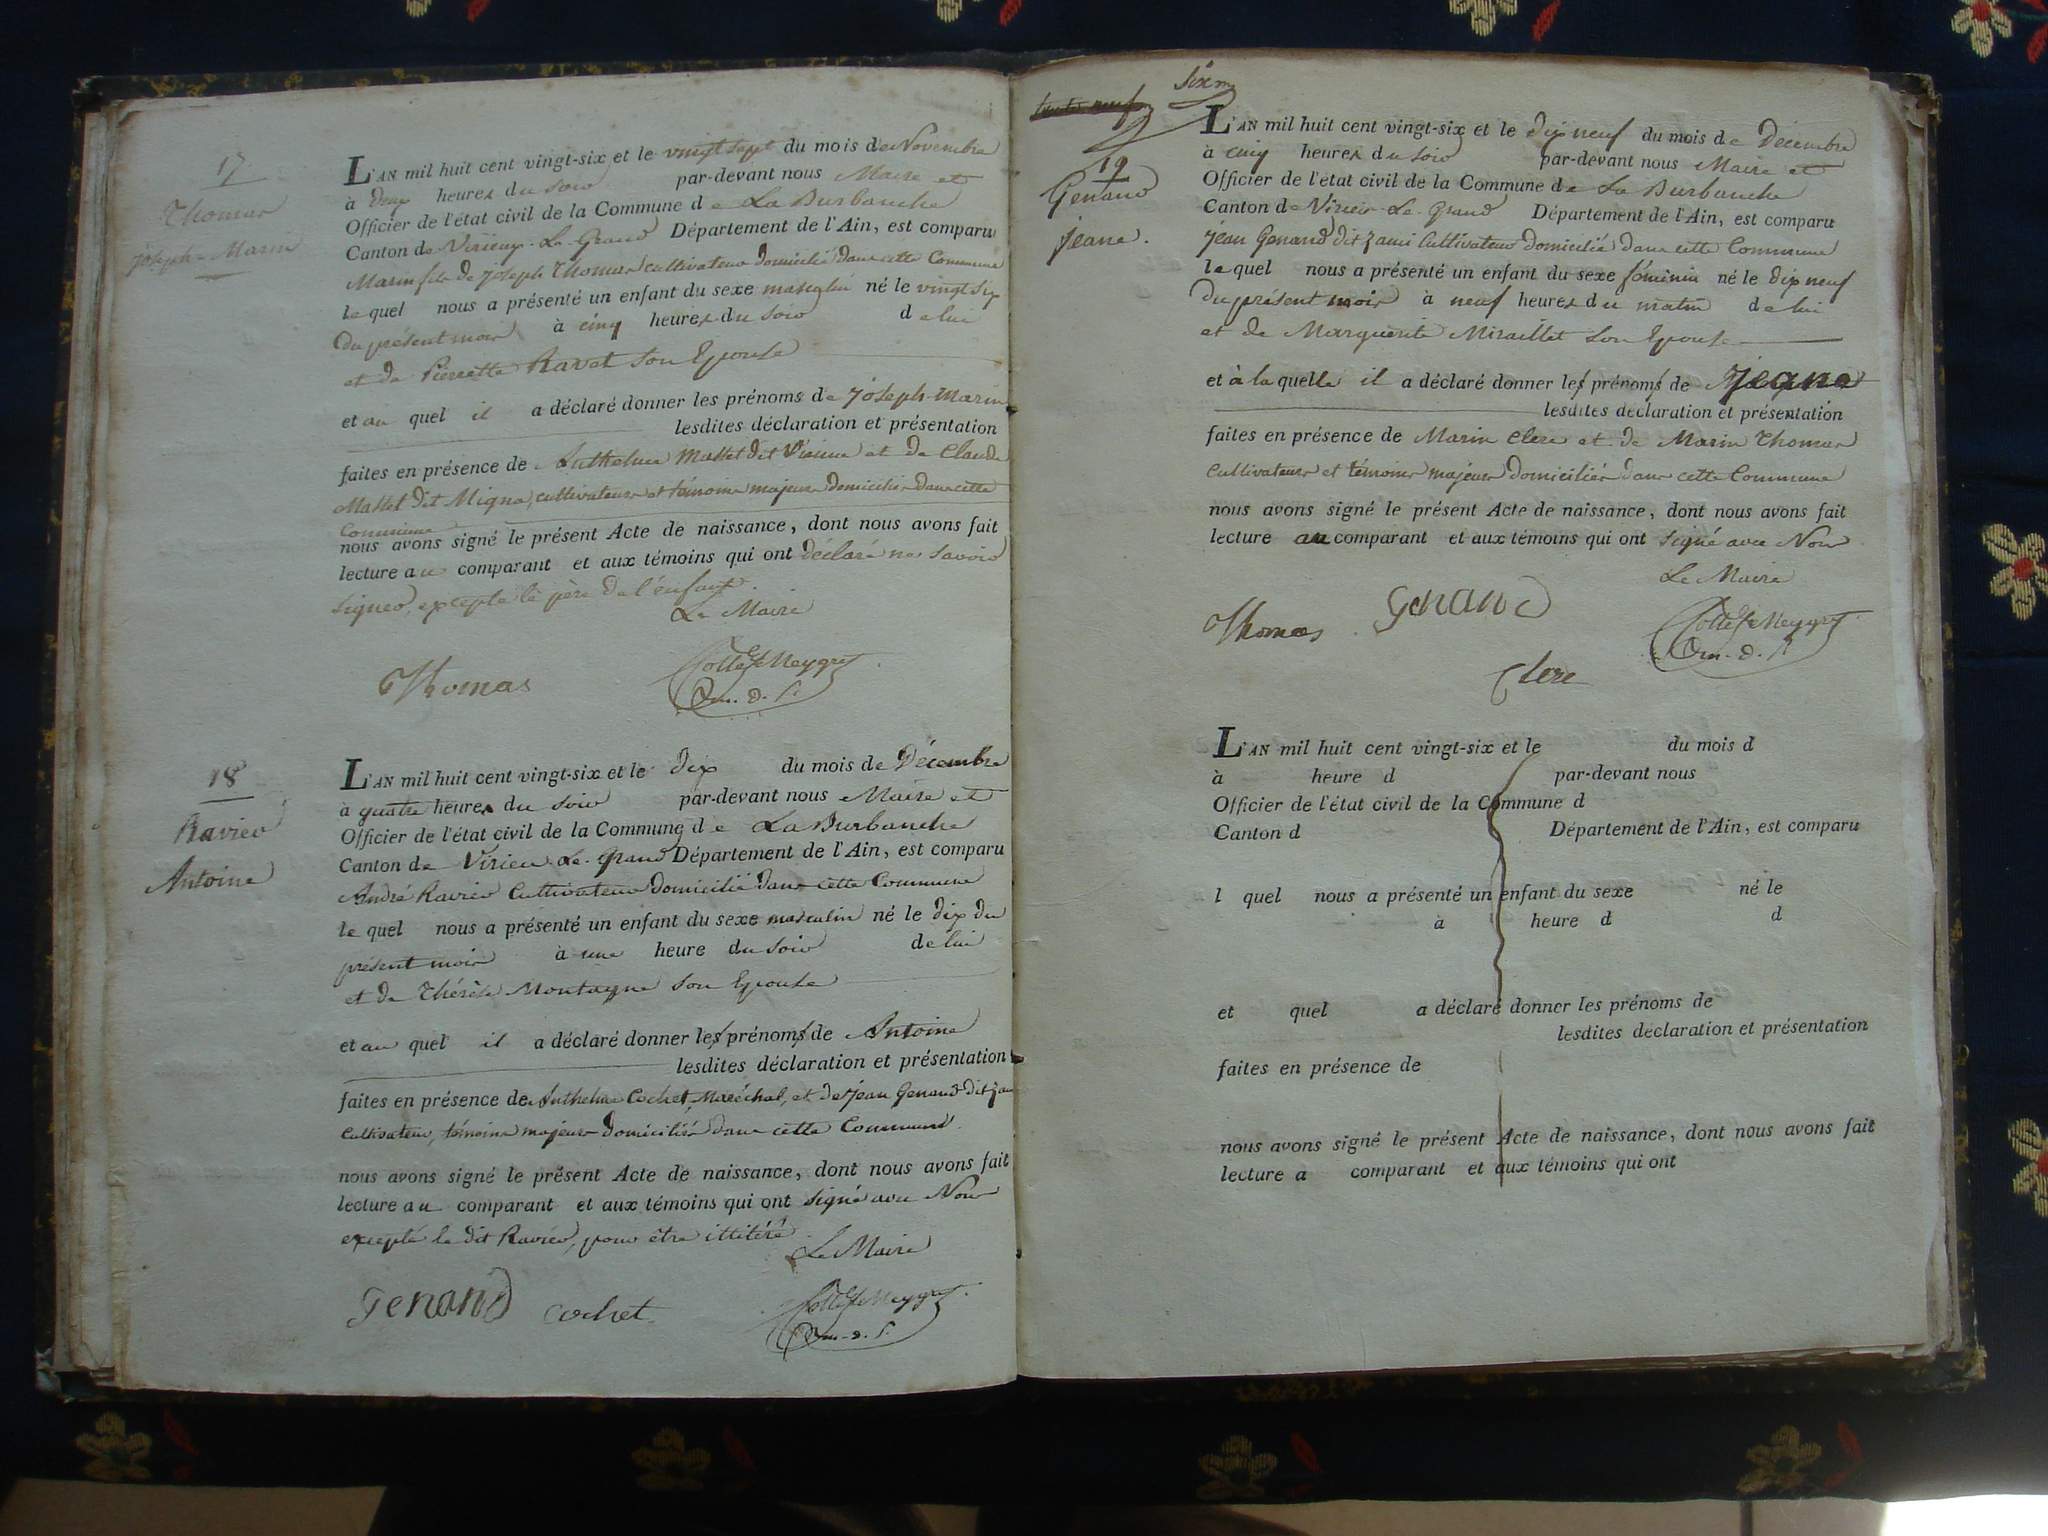 17
Thomas
joseph-Marin
L'AN mil huit cent vingt-six et le vingt sept du mois de Novembre
à deux heures du soir par-devant nous Maire et
Officier de l'état civil de la Commune de La Burbanche
Canton de Virieux-Le-Grand Département de l'Ain, est comparu
Marin fils de joseph Thomas cultivateur domicilié dans cette Commune
lequel nous a présenté un enfant du sexe né le vingt six
du présent mois à cinq heures du soir de lui
et de Pierrette Ravet son Epouse
et au quel il a déclaré donner les prénoms de joseph-Marin
lesdites déclaration et présentation
faites en présence de Anthelme Mallet dit et de Claude
Mallet dit Migna, cultivateurs et témoins majeurs domiciliés dans cette
Commune
nous avons signé le présent Acte de naissance, dont nous avons fait
lecture au comparant et aux témoins qui ont déclaré ne savoir
signer, excepté le père de l'enfant.
Le Maire
Thomas
18
Ravier
Antoine
L'AN mil huit cent vingt-six et le dix du mois de Décembre
à quatre heures du soir par-devant nous Maire et
Officier de l'état civil de la Commune de La Burbanche
Canton de Virieu-Le-Grand Département de l'Ain, est comparu
André Ravier Cultivateur domicilié dans cette Commune
lequel nous a présenté un enfant du sexe masculin né le dix du
présent mois à une heure du soir de lui
et de Thérèse Montagne son Epouse
et au quel il a déclaré donner les prénoms de Antoine
lesdites déclaration et présentation
faites en présence de Anthelme Cochet, Maréchal, et de jean Genand dit
Cultivateur, témoins majeurs domiciliés dans cette Commune.
nous avons signé le présent Acte de naissance, dont nous avons fait
lecture au comparant et aux témoins qui ont signé avec Nous
excepté le dit Ravier, pour être illitéré.
Le Maire
Genand Cochet
19
Genand
jeane.
L'AN mil huit cent vingt-six et le dix neuf du mois de Décembre
à cinq heures du soir par-devant nous Maire et
Officier de l'état civil de la Commune de La Burbanche
Canton de Virieu-Le-Grand Département de l'Ain, est comparu
jean Genand dit Cultivateur domicilié dans cette Commune
lequel nous a présenté un enfant du sexe féminin né le dix neuf
du présent mois à neuf heures du matin de lui
et de Marguerite Miraillet son Epouse
et à la quelle il a déclaré donner les prénoms de
lesdites déclaration et présentation
faites en présence de Marin Clerc et de Marin Thomas
Cultivateurs et témoins majeurs domiciliés dans cette Commune
nous avons signé le présent Acte de naissance, dont nous avons fait
lecture au comparant et aux témoins qui ont signé avec Nous
Le Maire
Thomas Genand
Clerc
L'AN mil huit cent vingt-six et le du mois d
à heure d par-devant nous
Officier de l'état civil de la Commune d
Canton d Département de l'Ain, est comparu
l quel nous a présenté un enfant du sexe né le
à heure d d
et quel a déclaré donner les prénoms de
lesdites déclaration et présentation
faites en présence de
nous avons signé le présent Acte de naissance, dont nous avons fait
lecture a comparant et aux témoins qui ont